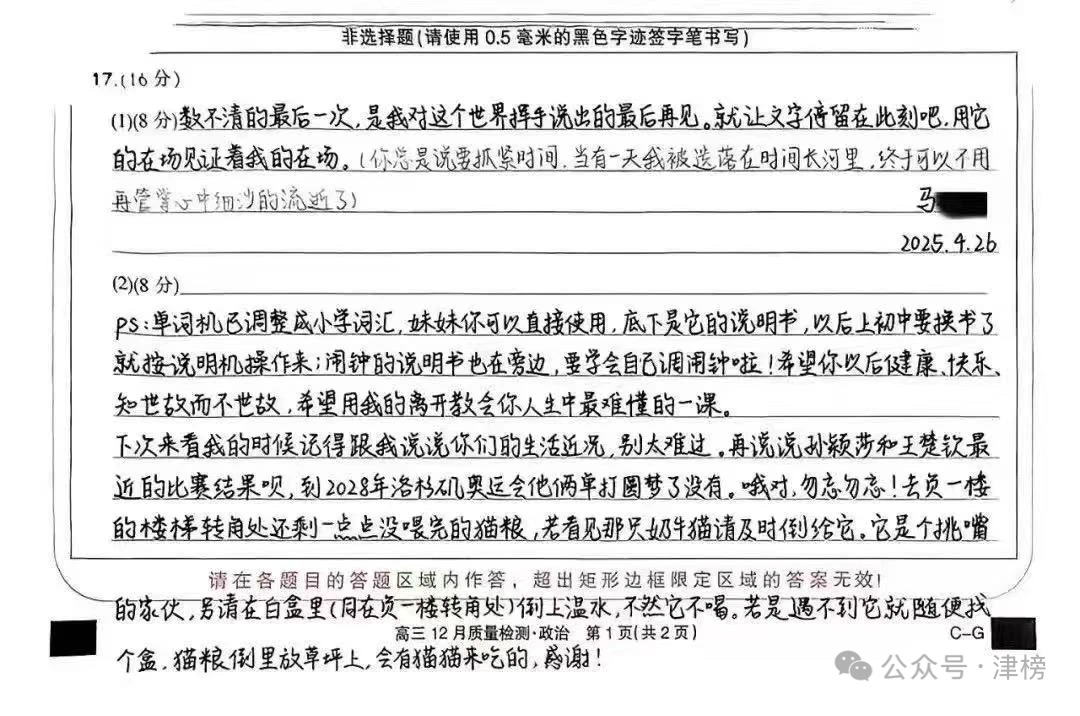 非选择题(请使用 0.5 毫米的黑色字迹签字笔书写)
17.(16 分)
(1)(8 分)数不清的最后一次,是我对这个世界挥手说出的最后再见。就让文字停留在此刻吧,用它
的在场见证着我的在场。(你总是说要抓紧时间.当有一天我被迭落在时间长河里,终于可以不用
再管掌心中细沙的流逝了)
马
2025.4.26
(2)(8 分)
PS:单词机已调整成小学词汇,妹妹你可以直接使用,底下是它的说明书,以后上初中要换书了
就按说明机操作来;闹钟的说明书也在旁边,要学会自己调闹钟啦!希望你以后健康、快乐、
知世故而不世故,希望用我的离开教会你人生中最难懂的一课。
下次来看我的时候记得跟我说说你们的生活近况,别太难过。再说说孙颖莎和王楚钦最
近的比赛结果呗,到2028年洛杉矶奥运会他俩单打圆梦了没有。哦对,勿忘勿忘!去负一楼
的楼梯转角处还剩一点点没喂完的猫粮,若看见那只奶牛猫请及时倒给它。它是个挑嘴
请在各题目的答题区域内作答,超出矩形边框限定区域的答案无效!
的家伙,另请在白盒里(同在负一楼转角处)倒上温水,不然它不喝。若是遇不到它就随便找
高三 12 月质量检测·政治 第 1 页(共 2 页)
C-G
个盒,猫粮倒里放草坪上,会有猫猫来吃的,感谢!
公众号·津榜